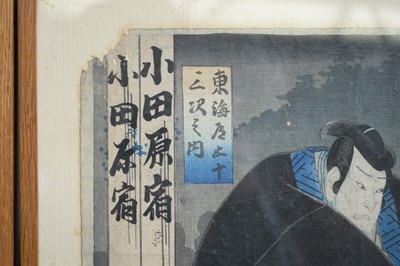 東海道五十
三次之内
小田原宿
小田原宿